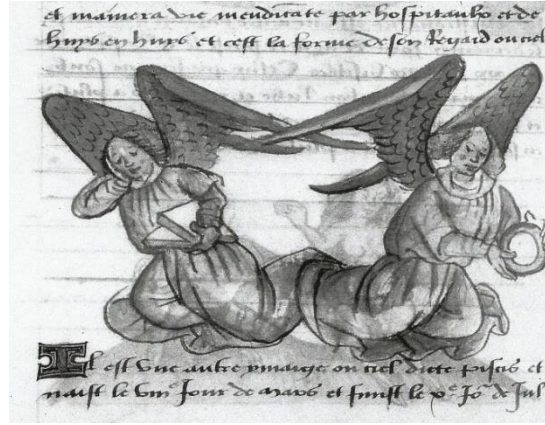 et mainera vie mendicate par hospitaulx et de
huys en huys et cest la forme de son Regard ou ciel
Il est vne autre ymaige ou ciel dicte piscis et
naist le viiie Jour de mars et finist le xe Jor de Jul